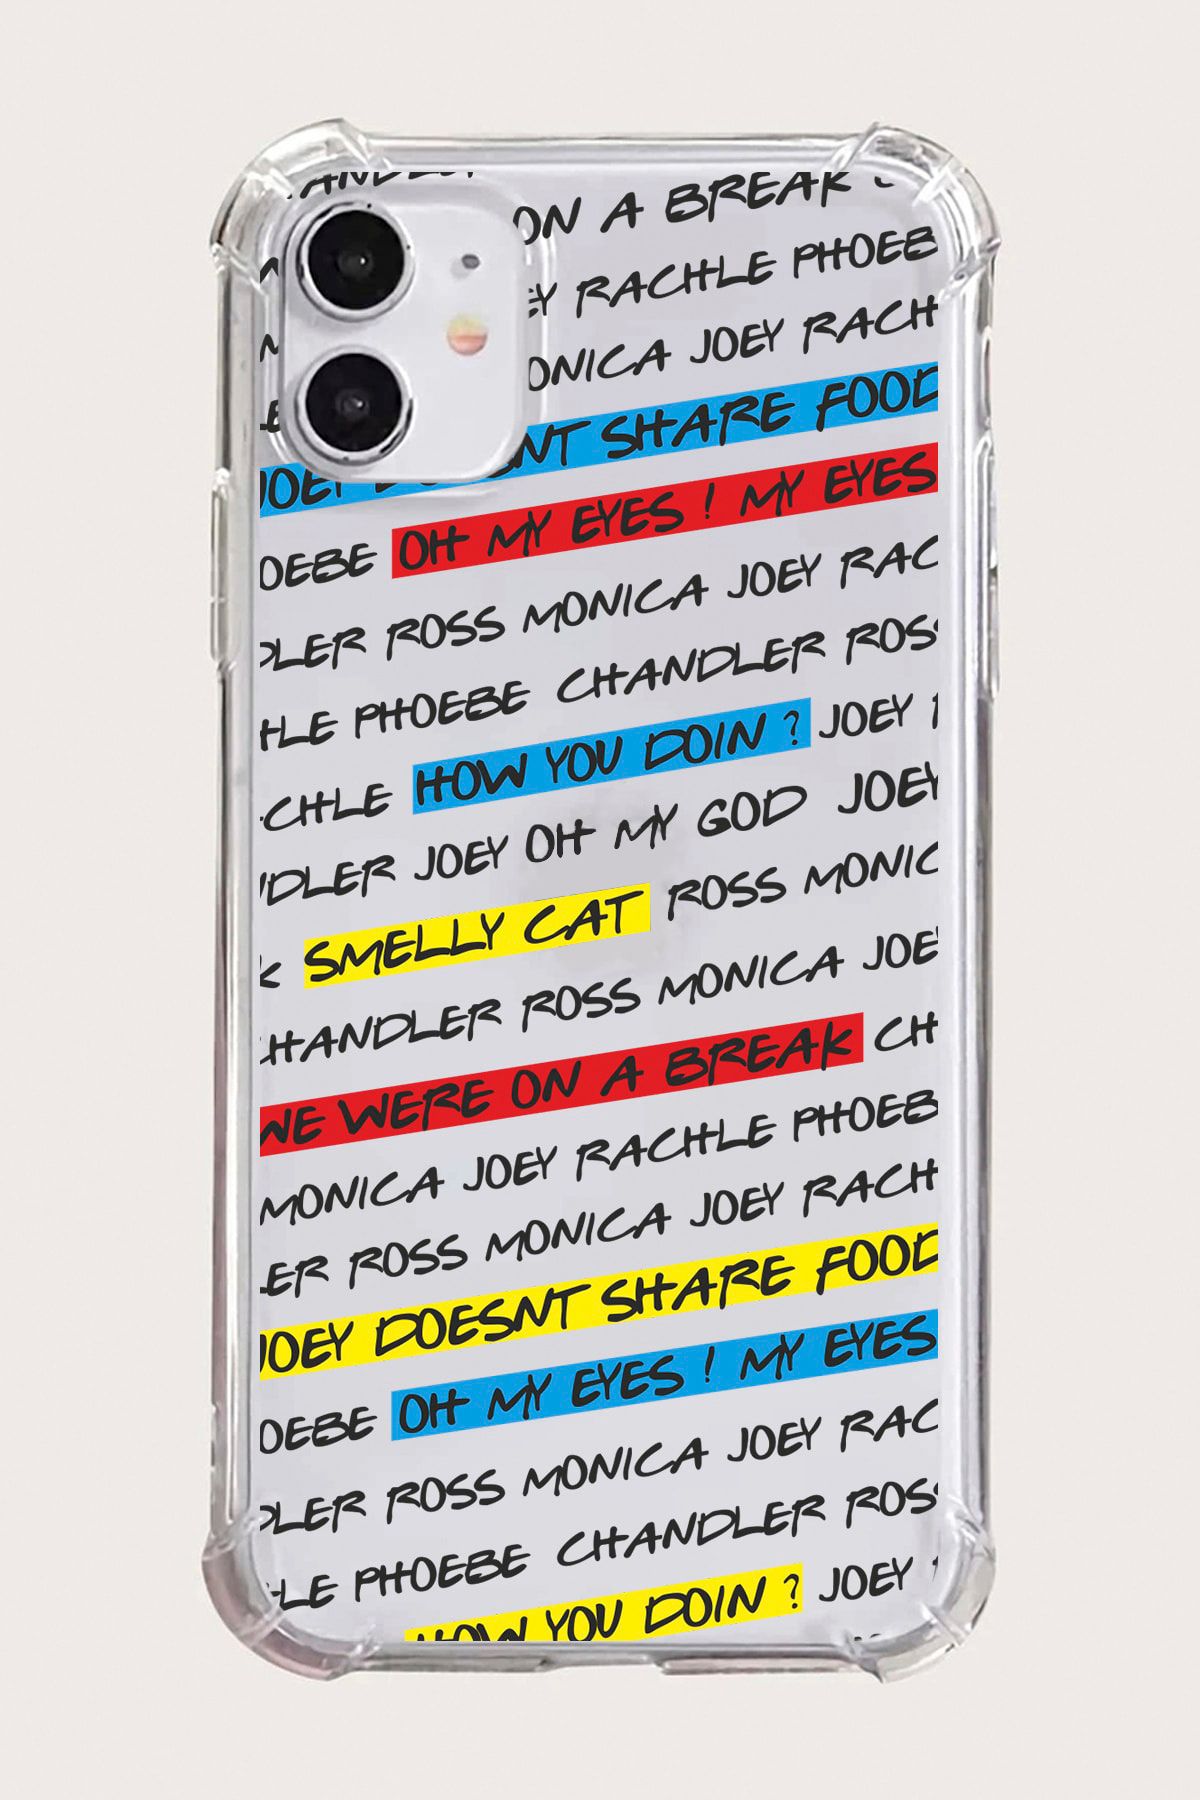 ON A BREAK
EY RACHLE PHOEB
ONICA JOEY RACH
JOEY NT SHARE FOOD
OEBE OH MY EYES ! MY EYES
DLER ROSS MONICA JOEY RAC
HLE PHOEBE CHANDLER ROS
CHLE HOW YOU DOIN ? JOEY
NDLER JOEY OH MY GOD JOEY
K SMELLY CAT ROSS MONIC
CHANDLER ROSS MONICA JOE
WE WERE ON A BREAK CH
MONICA JOEY RACHLE PHOEB
LER ROSS MONICA JOEY RACH
JOEY DOESNT SHARE FOOD
OEBE OH MY EYES ! MY EYES
DLER ROSS MONICA JOEY RAC
LE PHOEBE CHANDLER ROS
HOW YOU DOIN ? JOEY